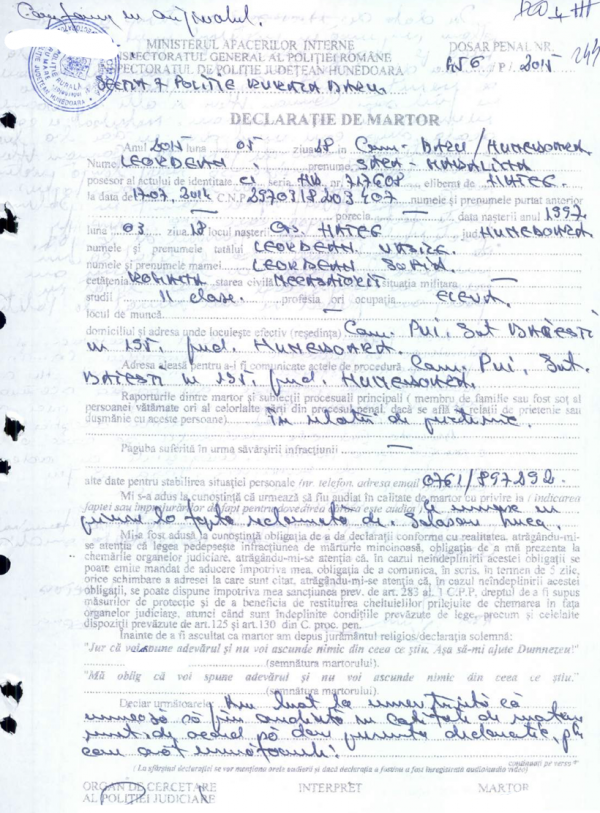 Conform cu originalul.
MINISTERUL AFACERILOR INTERNE
INSPECTORATUL GENERAL AL POLIȚIEI ROMÂNE
INSPECTORATUL DE POLIȚIE JUDEȚEAN HUNEDOARA
SECȚIA 7 POLIȚIE RURALĂ BARU
DOSAR PENAL NR.
/ P / 2015
DECLARAȚIE DE MARTOR
Anul 2015 luna 05 ziua 28 în Com. BARU / HUNEDOARA
Nume LEORDEAN prenume SARA - MADALINA
posesor al actului de identitate CI seria HD nr. 717608 eliberat de HATEG.
la data de 17.07.2014 C.N.P. 2970318203407 numele și prenumele purtat anterior
— porecla — data nașterii anul 1997
luna 03 ziua 18 locul nașterii Or. HATEG jud. HUNEDOARA
numele și prenumele tatălui LEORDEAN VASILE.
numele și prenumele mamei LEORDEAN SORINA.
cetățenia ROMANA starea civilă NECASATORIT situația militară —
studii 11 clase. profesia ori ocupația ELEVA.
locul de muncă —
domiciliul și adresa unde locuiește efectiv (reședința) Com. Pui, Sat BAIEȘTI
nr 131. jud. HUNEDOARA.
Adresa aleasă pentru a-i fi comunicate actele de procedură Com. Pui, Sat.
BAIEȘTI nr 131. jud. HUNEDOARA.
Raporturile dintre martor și subiecții procesuali principali ( membru de familie sau fost soț al
persoanei vătămate ori al celorlalte părți din procesul penal, dacă se află în relații de prietenie sau
dușmănie cu aceste persoane) în relații de prietenie.
Paguba suferită în urma săvârșirii infracțiunii —
alte date pentru stabilirea situației personale (nr. telefon, adresa email) 0761/897292.
Mi s-a adus la cunoștință că urmează să fiu audiat în calitate de martor cu privire la ( indicarea
faptei sau împrejurărilor de fapt pentru dovedirea cărora este audiat ) Ce cunosc cu
privire la fapta reclamata de.
Mi-a fost adusă la cunoștință obligația de a da declarații conforme cu realitatea, atrăgându-mi-
se atenția că legea pedepsește infracțiunea de mărturie mincinoasă, obligația de a mă prezenta la
chemările organelor judiciare, atrăgându-mi-se atenția că, în cazul neîndeplinirii acestei obligații se
poate emite mandat de aducere împotriva mea, obligația de a comunica, în scris, în termen de 5 zile,
orice schimbare a adresei la care sunt citat, atrăgându-mi-se atenția că, în cazul neîndeplinirii acestei
obligații, se poate dispune împotriva mea sancțiunea prev. de art. 283 al. 1 C.P.P, dreptul de a fi supus
măsurilor de protecție și de a beneficia de restituirea cheltuielilor prilejuite de chemarea în fața
organelor judiciare, atunci când sunt îndeplinite condițiile prevăzute de lege, precum și celelalte
dispoziții prevăzute de art.125 și art.130 din C. proc. pen.
Înainte de a fi ascultat ca martor am depus jurământul religios/declarația solemnă:
"Jur că voi spune adevărul și nu voi ascunde nimic din ceea ce știu. Așa să-mi ajute Dumnezeu!"
(semnătura martorului).
"Mă oblig că voi spune adevărul și nu voi ascunde nimic din ceea ce știu."
(semnătura martorului).
Declar următoarele: Am luat la cunoștință că
urmează să fiu audiată în calitate de martor
sunt de acord să dau prezenta declarație, pt.
care arăt următoarele:
continuați pe verso
( La sfârșitul declarației se vor menționa orele audierii și dacă declarația a fost înregistrată audio/audio video)
ORGAN DE CERCETARE
AL POLIȚIEI JUDICIARE
INTERPRET
MARTOR